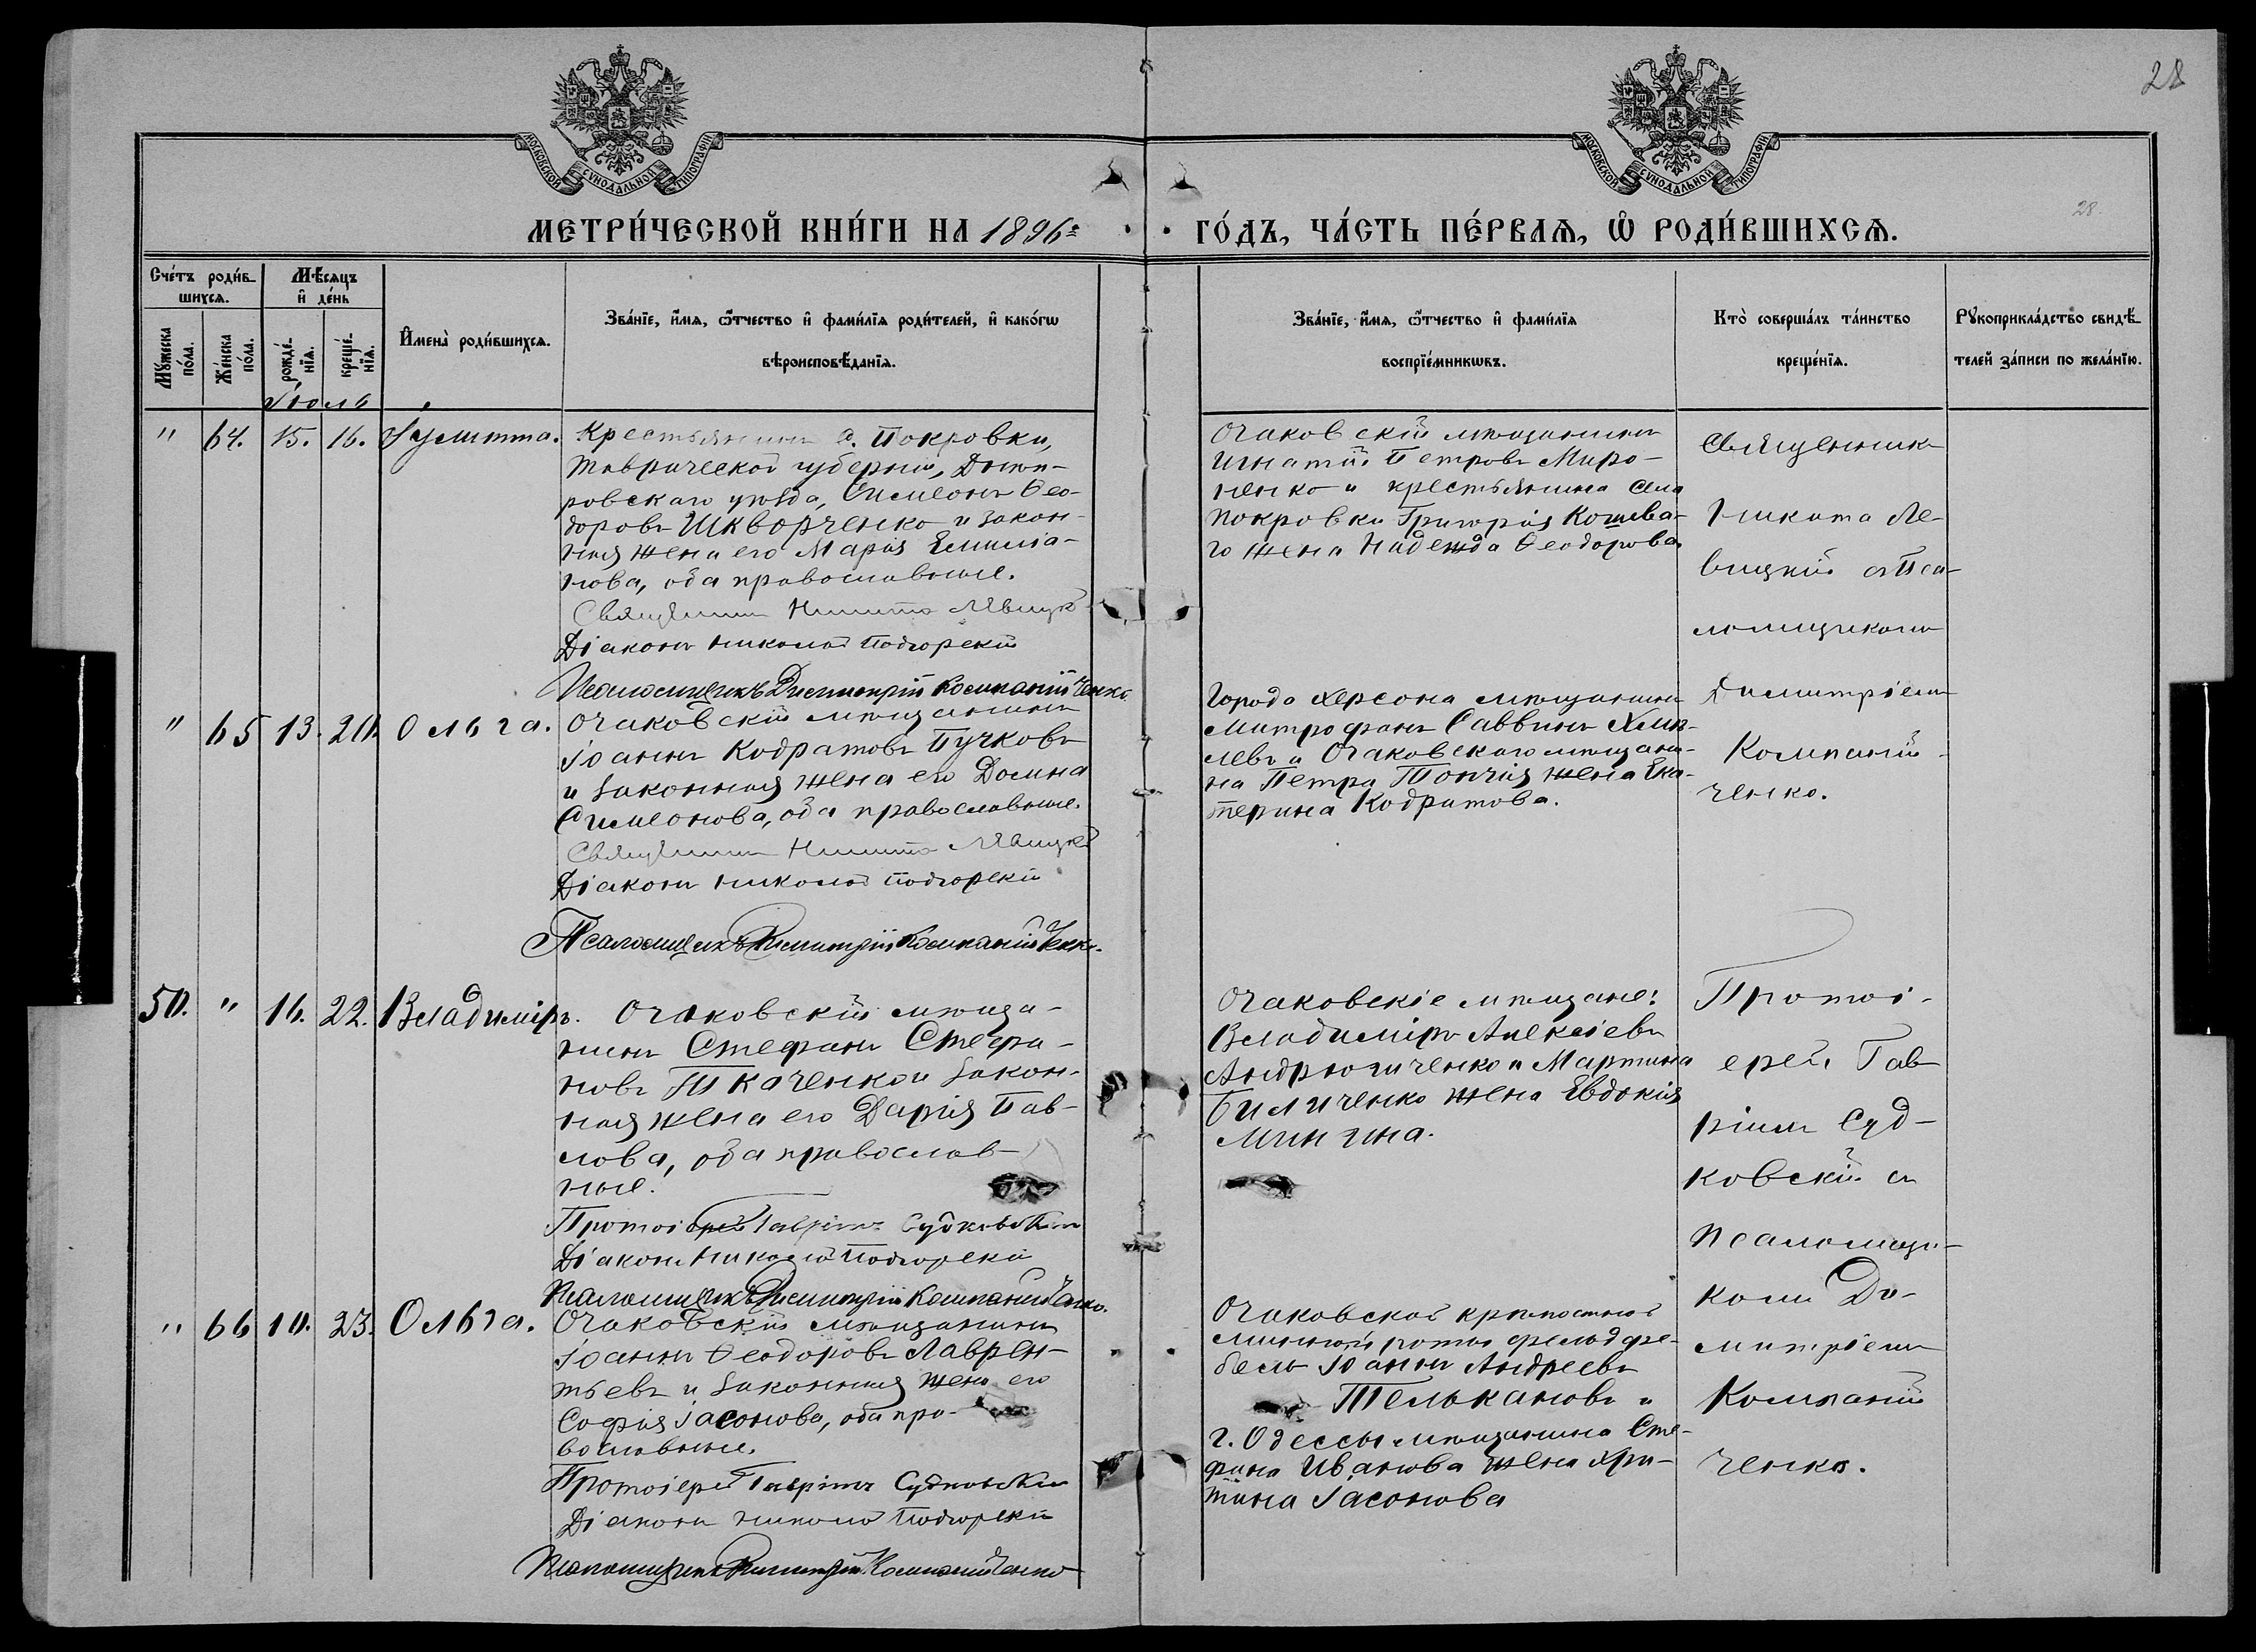 28
МОСКОВСКОЙ СѴНОДАЛЬНОЙ ТИПОГРАФІИ
МОСКОВСКОЙ СѴНОДАЛЬНОЙ ТИПОГРАФІИ
МЕТРИ́ЧЕСКОЙ КНИ́ГИ НА 1896г
ГО́ДЪ, ЧА́СТЬ ПЕ́РВАѦ, Ѡ҆ РОДИ́ВШИХСѦ.
28.
Сче́тъ роди́в
шихсѧ.
Мѣ́сяцъ
и҆ де́нь
Мꙋ́жеска
по́ла.
Же́нска
по́ла.
рожде́-
нїѧ.
креще́-
нїѧ.
И҆мена̀ роди́вшихсѧ.
Зва́нїе, и҆́мѧ, ѻ҆́тчество и҆ фами́лїѧ роди́телей, и҆ како́гѡ
вѣроисповѣ́данїѧ.
Зва́нїе, и҆́мѧ, ѻ҆́тчество и҆ фами́лїѧ
воспрїе́мникѡвъ.
Кто̀ соверша́лъ та́инство
креще́нїѧ.
Рꙋкоприкла́дство свидѣ́-
телей за́писи по жела́нїю.
Іюль
" 64. 15. 16. Іулитта.
Крестьянинъ с. Покровки,
Таврической губерніи, Днѣп-
ровскаго уѣзда, Симеонъ Ѳео-
доровъ Шкворченко и закон-
ная жена его Марія Емиліа-
нова, оба православные.
Священникъ Никита Левицкій
Діаконъ Николай Подгорскій
Псаломщикъ Димитрій Компанійченко
Очаковскій мѣщанинъ
Игнатій Петровъ Миро-
ненко и крестьянина села
Покровки Григорія Кошева-
го жена Надежда Ѳеодорова.
Священникъ
Никита Ле-
вицкій съ Пса-
ломщикомъ
Димитріемъ
Компаній-
ченко.
" 65 13. 20. Ольга.
Очаковскій мѣщанинъ
Іоаннъ Кодратовъ Пучковъ
и законная жена его Домна
Симеонова, оба православные.
Священникъ Никита Левицкій
Діаконъ Николай Подгорскій
Псаломщикъ Димитрій Компанійченко.
Города Херсона мѣщанинъ
Митрофанъ Саввинъ Хмѣ-
левъ и Очаковскаго мѣщани-
на Петра Топчія жена Ека-
терина Кодратова.
50. " 16. 22. Владиміръ.
Очаковскій мѣща-
нинъ Стефанъ Стефа-
новъ Ткаченко и закон-
ная жена его Дарія Пав-
лова, оба православ-
ные.
Протоіерей Гавріилъ Судковскій
Діаконъ Николай Подгорскій
Псаломщикъ Димитрій Компанійченко.
Очаковскіе мѣщане:
Владиміръ Алексіевъ
Андрющенко и Мартина
Биличенко жена Евдокія
Минина.
Протоі-
ерей Гав-
ріилъ Суд-
ковскій съ
Псаломщи-
комъ Ди-
митріемъ
Компаній
ченко.
" 66 10. 23. Ольга.
Очаковскій мѣщанинъ
Іоаннъ Ѳеодоровъ Лаврен-
тьевъ и законная жена его
Софія Іасонова, оба пра-
вославные.
Протоіерей Гавріилъ Судковскій
Діаконъ Николай Подгорскій
Псаломщикъ Димитрій Компанійченко
Очаковской крѣпостной
минной роты фельдфе-
бель Іоаннъ Андреевъ
Телькановъ и
г. Одессы мѣщанина Сте-
фана Иванова жена Хри-
стина Іасонова